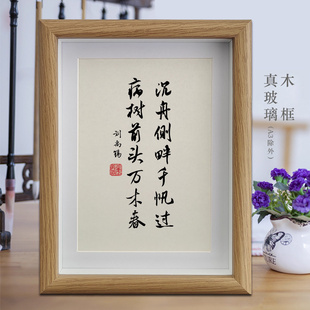 沉舟侧畔千帆过
病树前头万木春
刘禹锡
木框
真玻璃(A3除外)